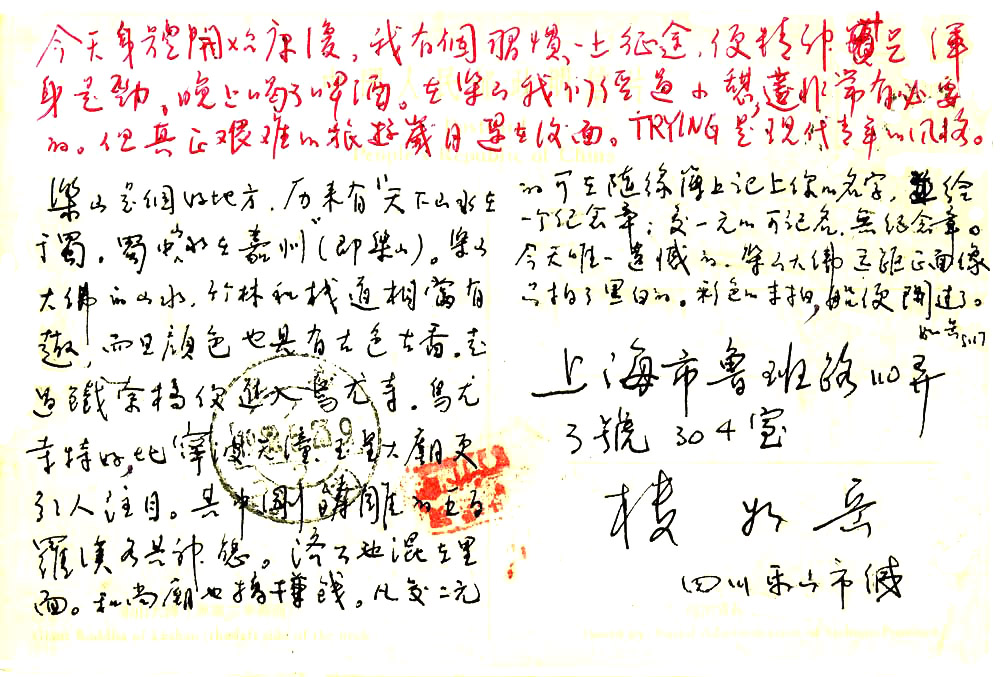 今天身體開始康復，我有個習慣，一上征途，便精神實足，渾
身是勁，晚上喝了啤酒。在樂山我們經過小憩，這非常有必要
的。但真正艱難的旅遊歲月還在後面。TRYING是現代青年的風格。
People's Republic of China
樂山是個好地方，历来有“天下山水在
于蜀，蜀山水在嘉州”（即樂山）。樂山
大佛的山水，竹林和栈道相當有
趣，而且顔色也具有古色古香。走
過鐵索橋便進入烏尤寺。烏尤
寺特好，比寧波天童、玉皇大廟更
引人注目。其中剛雕的五百
羅漢各具神態。济公也混在里
面。和尚廟也搞錢。凡交二元
的可在隨缘簿上记上你的名字，並给
一个纪念章；交一元的可记名，無纪念章。
今天唯一遺憾的，樂山大佛正面像
只拍了黑白的。彩色的未拍，船便開走了。
如岳5.17
上海市魯班路110弄
3號304室
楼如岳
四川乐山市缄